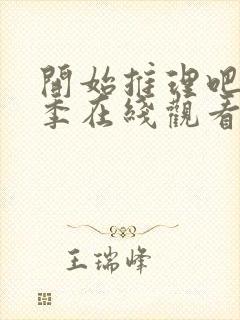 開始推理吧
季在綫觀看
王瑞峰